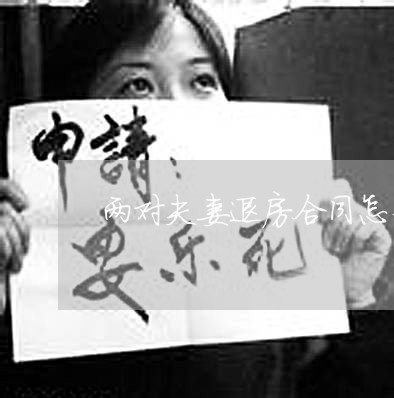 申請：
两对夫妻退房合同怎
安乐死